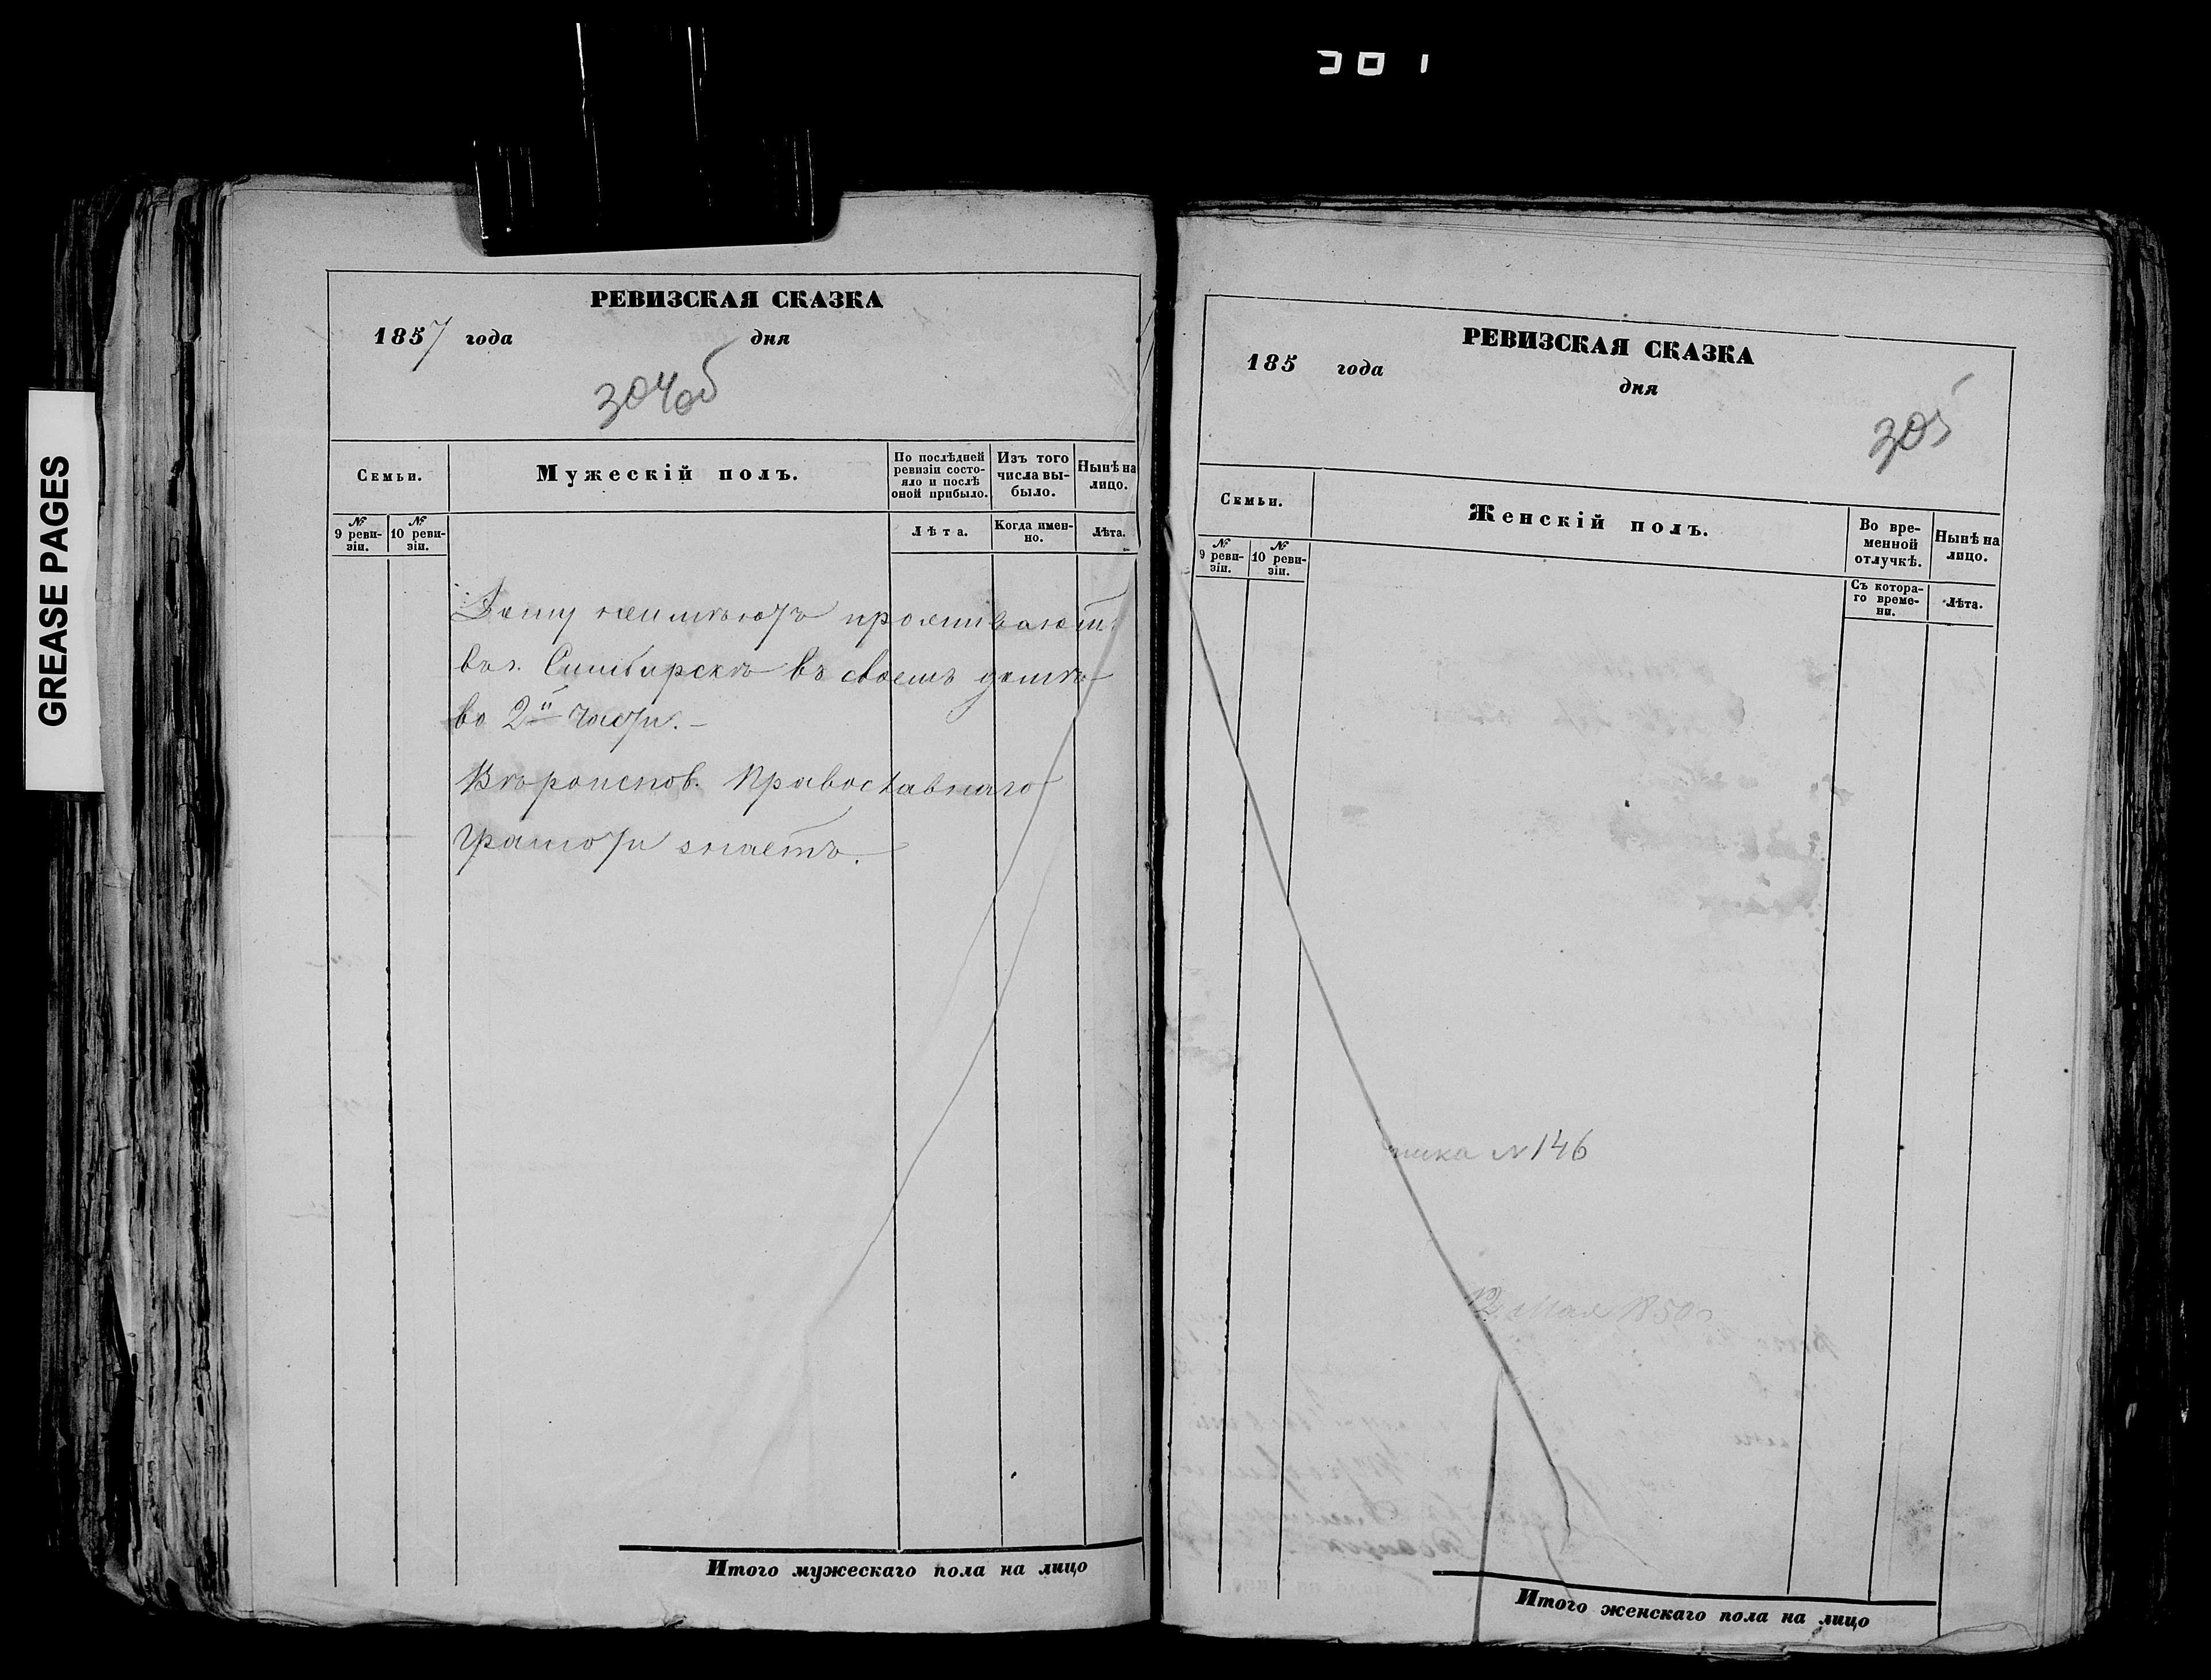 301
GREASE PAGES
РЕВИЗСКАЯ СКАЗКА
1857 года дня
304об
Семьи.
Мужескій полъ.
По послѣдней ревизіи состояло и послѣ оной прибыло.
Изъ того числа выбыло.
Нынѣ на лицо.
№ 9 ревизіи.
№ 10 ревизіи.
Лѣта.
Когда именно.
Лѣта.
неимѣютъ проживаютъ
въ г. Симбирскѣ въ своемъ домѣ
во 2й части.
Вѣроисповѣд. Православнаго
Грамоти знаетъ.
Итого мужескаго пола на лицо
РЕВИЗСКАЯ СКАЗКА
185 года дня
305
Семьи.
Женскій полъ.
Во временной отлучкѣ.
Нынѣ на лицо.
№ 9 ревизіи.
№ 10 ревизіи.
Съ котораго времени.
Лѣта.
№ 146
Мая 1850
Итого женскаго пола на лицо